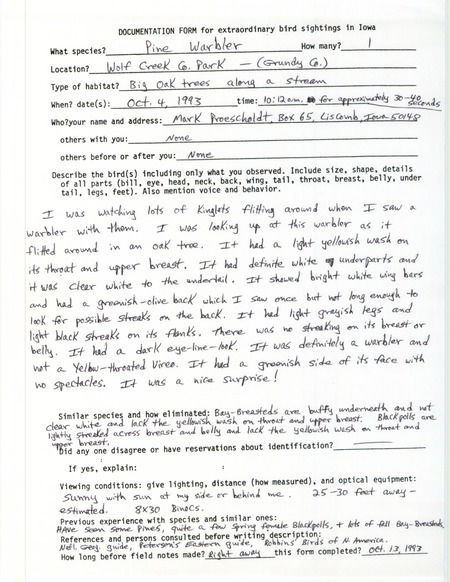 DOCUMENTATION FORM for extraordinary bird sightings in Iowa
What species? Pine Warbler How many? 1
Location? Wolf Creek Co. Park - (Grundy Co.)
Type of habitat? Big Oak trees along a stream
When? date(s): Oct. 4, 1993 time: 10:12 am. for approximately 30-40 seconds
Who?your name and address: Mark Proescholdt, Box 65, Liscomb, Iowa 50148
others with you: None
others before or after you: None
Describe the bird(s) including only what you observed. Include size, shape, details
of all parts (bill, eye, head, neck, back, wing, tail, throat, breast, belly, under
tail, legs, feet). Also mention voice and behavior.
I was watching lots of Kinglets flitting around when I saw a
warbler with them. I was looking up at this warbler as it
flitted around in an oak tree. It had a light yellowish wash on
its throat and upper breast. It had definite white underparts and
it was clear white to the undertail. It showed bright white wing bars
and had a greenish-olive back which I saw once but not long enough to
look for possible streaks on the back. It had light grayish legs and
light black streaks on its flanks. There was no streaking on its breast or
belly. It had a dark eye-line-look. It was definitely a warbler and
not a Yellow-throated Vireo. It had a greenish side of its face with
no spectacles. It was a nice surprise!
Similar species and how eliminated: Bay-Breasteds are buffy underneath and not
clear white and lack the yellowish wash on throat and upper breast. Blackpolls are
lightly streaked across breast and belly and lack the yellowish wash on throat and
upper breast.
Did any one disagree or have reservations about identification?
If yes, explain:
Viewing conditions: give lighting, distance (how measured), and optical equipment:
Sunny with sun at my side or behind me. 25-30 feet away-
estimated. 8X30 Binocs.
Previous experience with species and similar ones:
Have seen some Pines, quite a few spring female Blackpolls, + lots of fall Bay-Breasteds.
References and persons consulted before writing description:
Natl. Geog. guide, Peterson's Eastern guide, Robbins' Birds of N. America.
How long before field notes made? Right away this form completed? Oct. 13, 1993